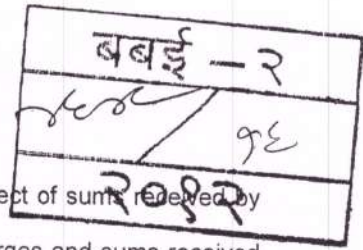 बबई – २
१६
२०१२
ect of sums received by
rges and sums received